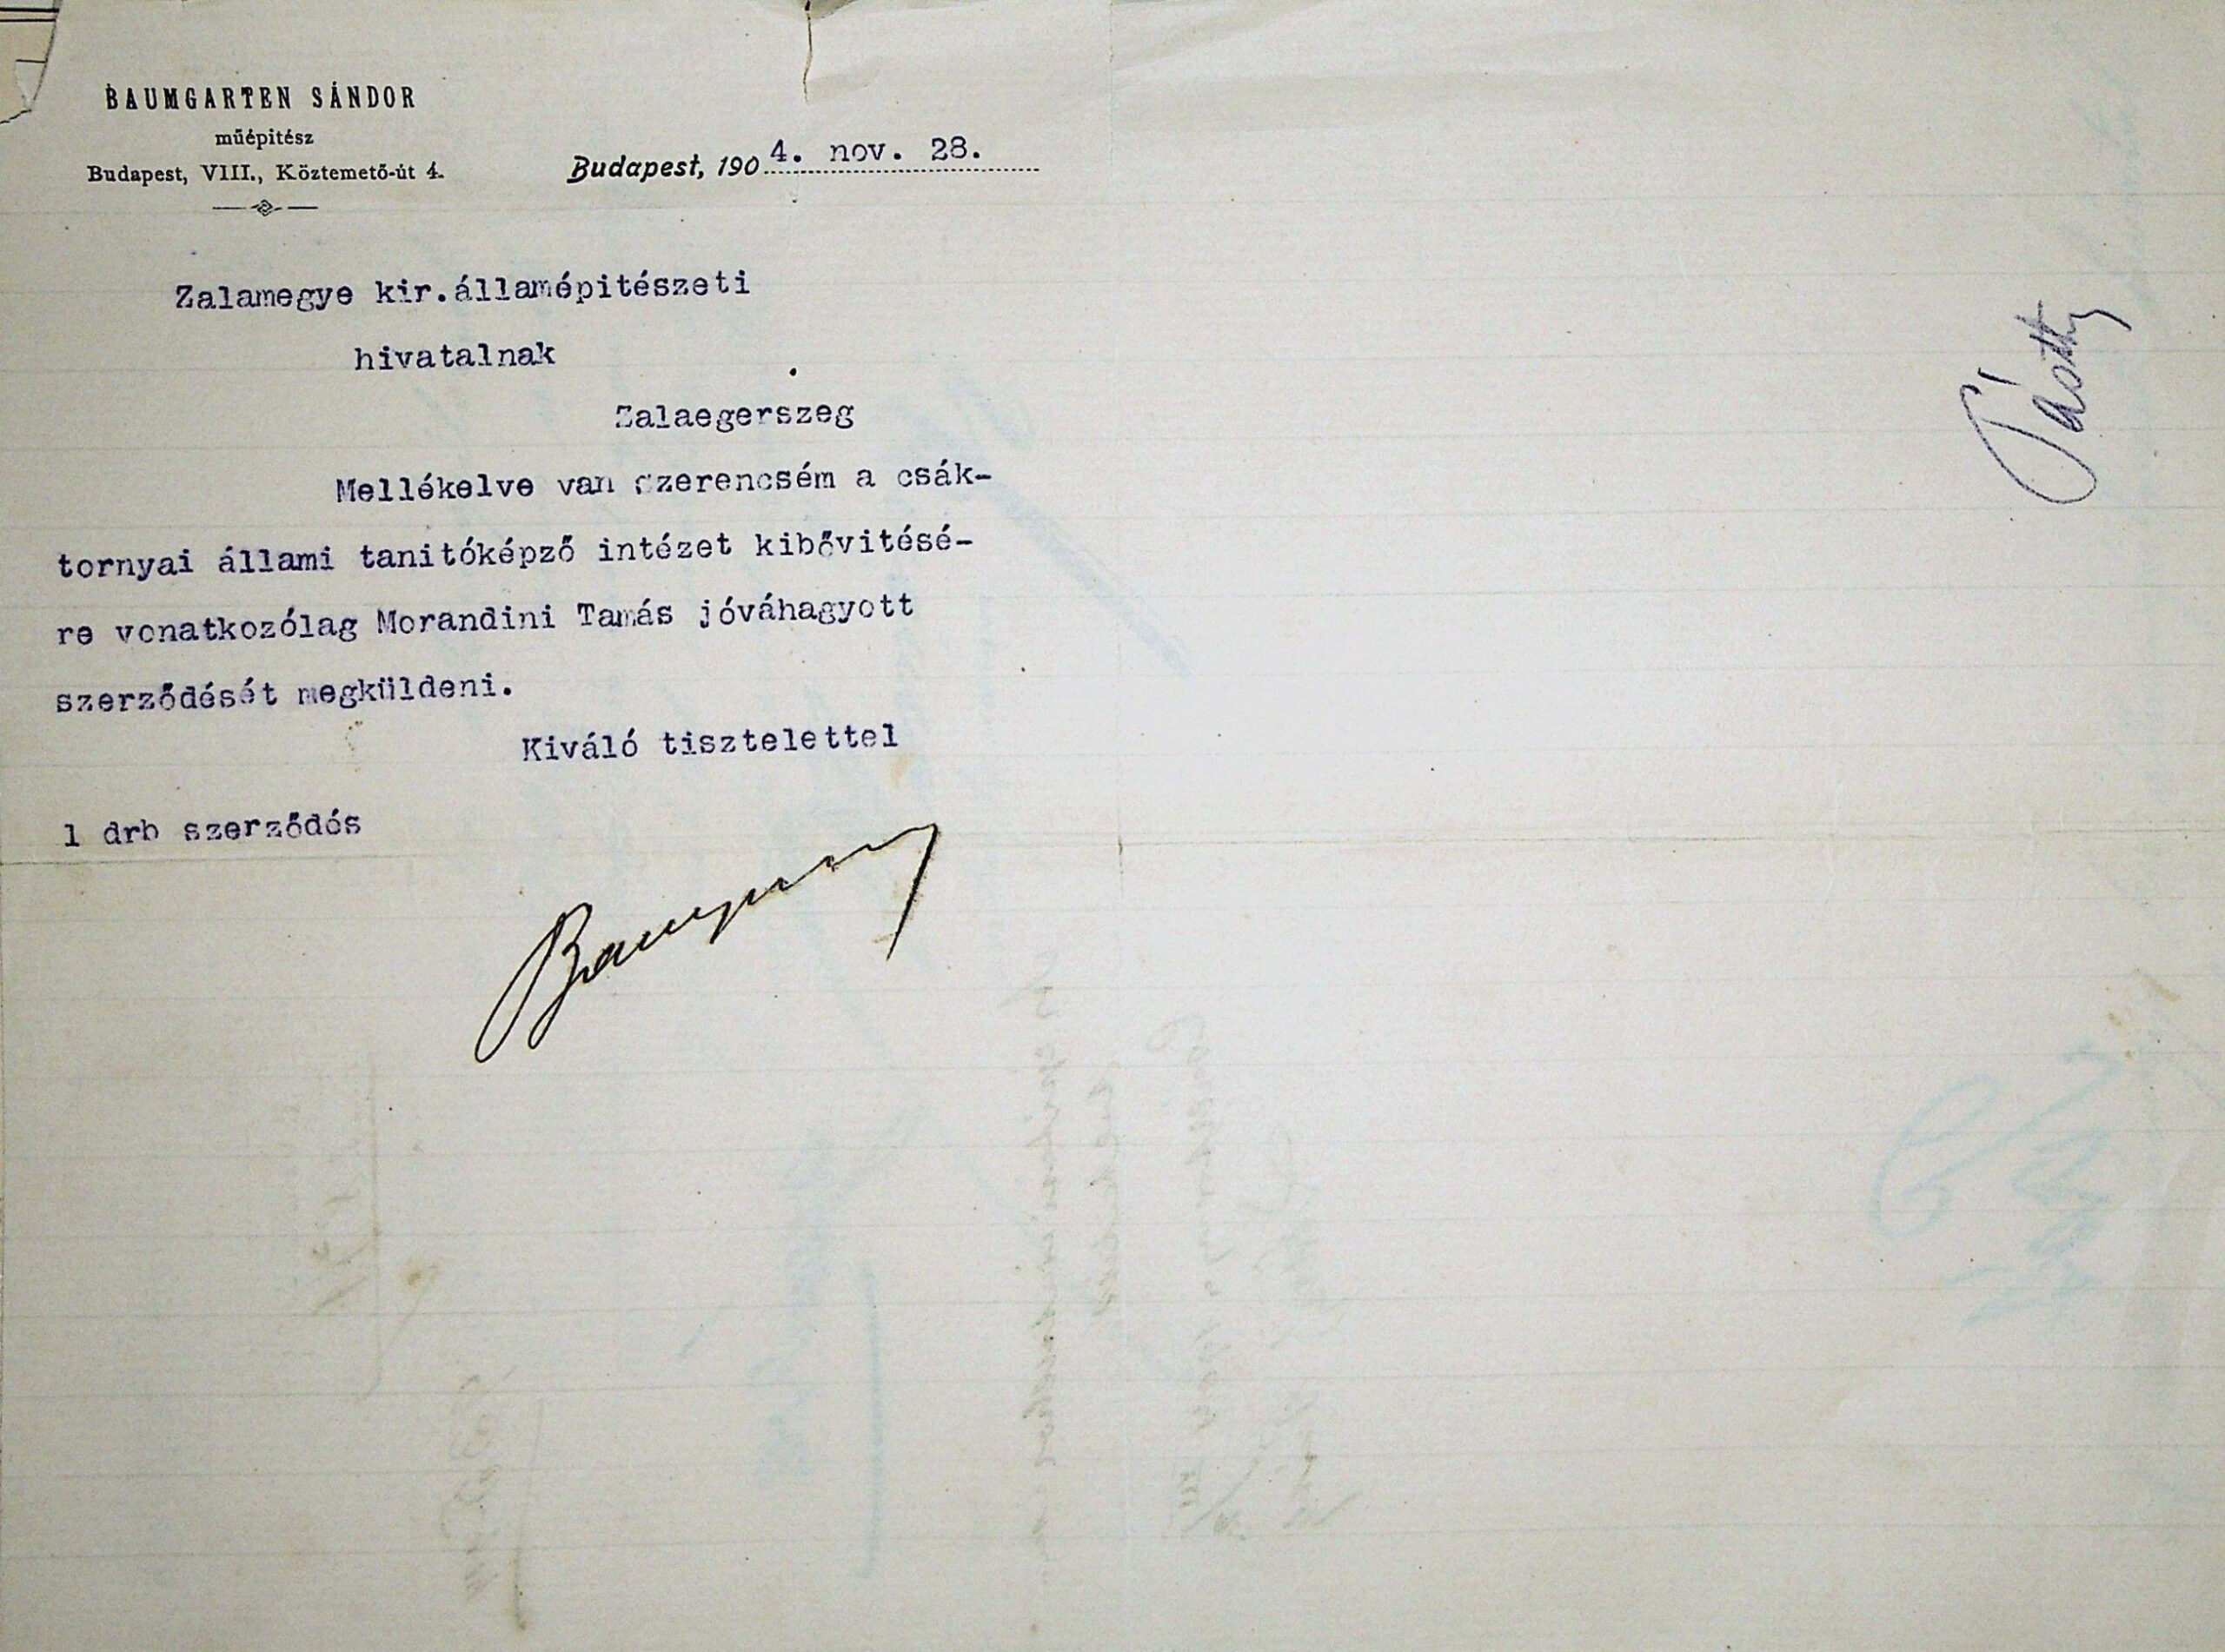 BAUMGARTEN SÁNDOR
műépitész
Budapest, VIII., Köztemető-út 4.
Budapest, 1904. nov. 28.
Zalamegye kir.államépitészeti
hivatalnak
Zalaegerszeg
Mellékelve van szerencsém a csák-
tornyai állami tanitóképző intézet kibővitésé-
re vonatkozólag Morandini Tamás jóváhagyott
szerződését megküldeni.
Kiváló tisztelettel
1 drb szerződés